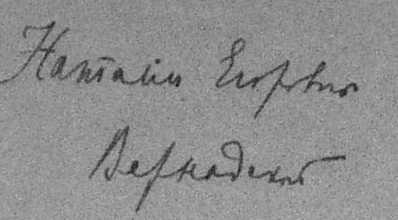 Наталіи Егоровнѣ
Вернадской